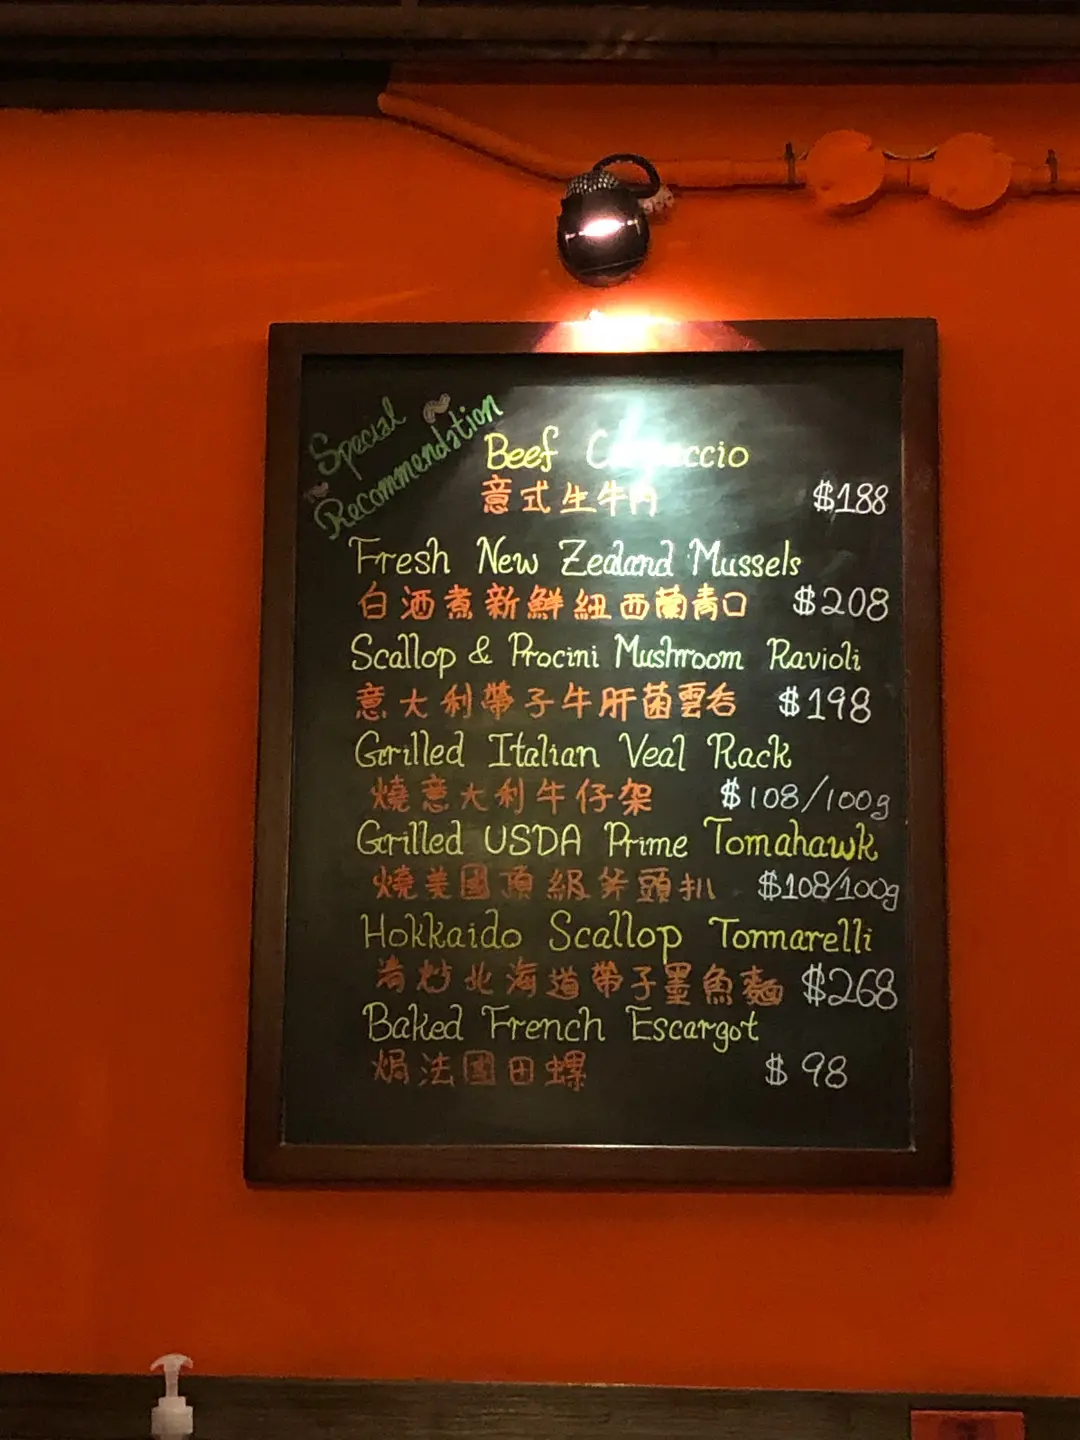 Special
Recommendation
Beef Carpaccio
意式生牛肉 $188
Fresh New Zealand Mussels
白酒煮新鮮紐西蘭青口 $208
Scallop & Procini Mushroom Ravioli
意大利帶子牛肝菌雲吞 $198
Grilled Italian Veal Rack
燒意大利牛仔架 $108/100g
Grilled USDA Prime Tomahawk
燒美國頂級斧頭扒 $108/100g
Hokkaido Scallop Tonnarelli
清炒北海道帶子墨魚麵 $268
Baked French Escargot
焗法國田螺 $98